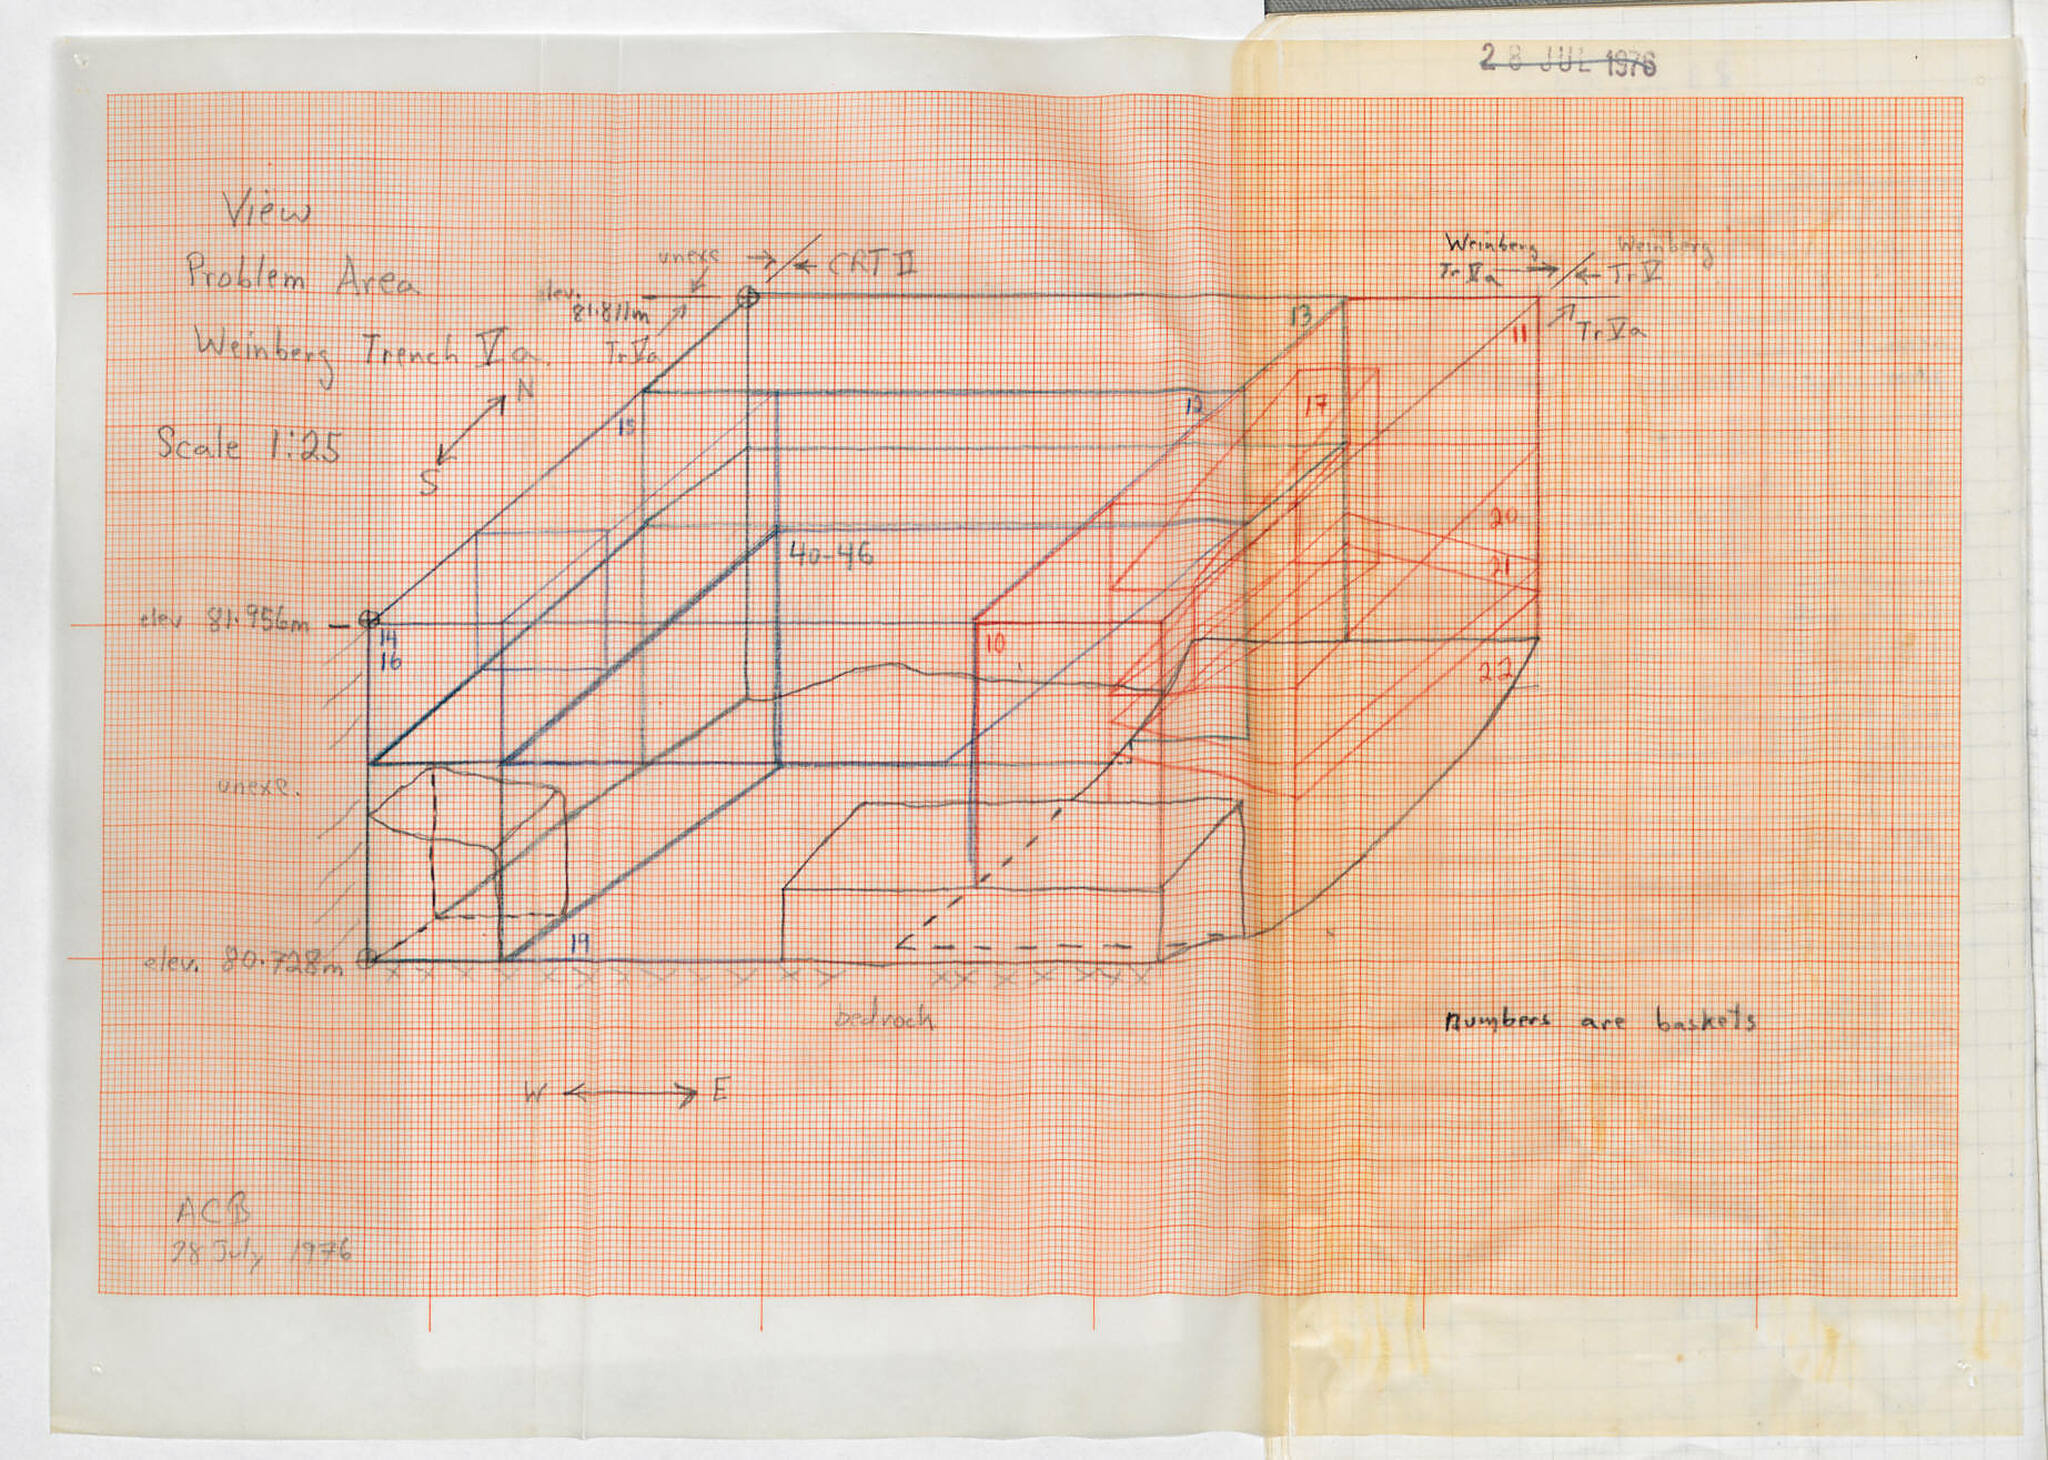 28 JUL 1976
View
Problem Area
Weinberg Trench Va.
Scale 1:25
N
S
unexc
CRT II
elev.
81.811m
Tr Va
Weinberg
Tr Va
Weinberg
Tr V
Tr Va
13
11
15
12
17
40-46
20
21
elev 81.956m
14
16
10
22
unexc.
19
elev. 80.728m
bedrock
numbers are baskets
W
E
ACB
28 July 1976